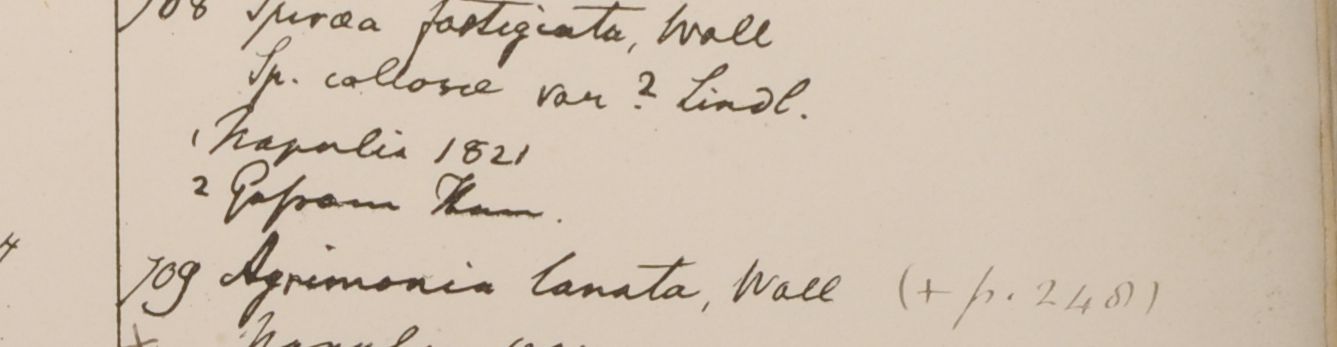 708 Spiræa fastigiata, Wall
Sp. callosæ var ? Lindl.
1 Napalia 1821
2 Gossam Ham.
709 Agrimonia lanata, Wall (+ p. 248)